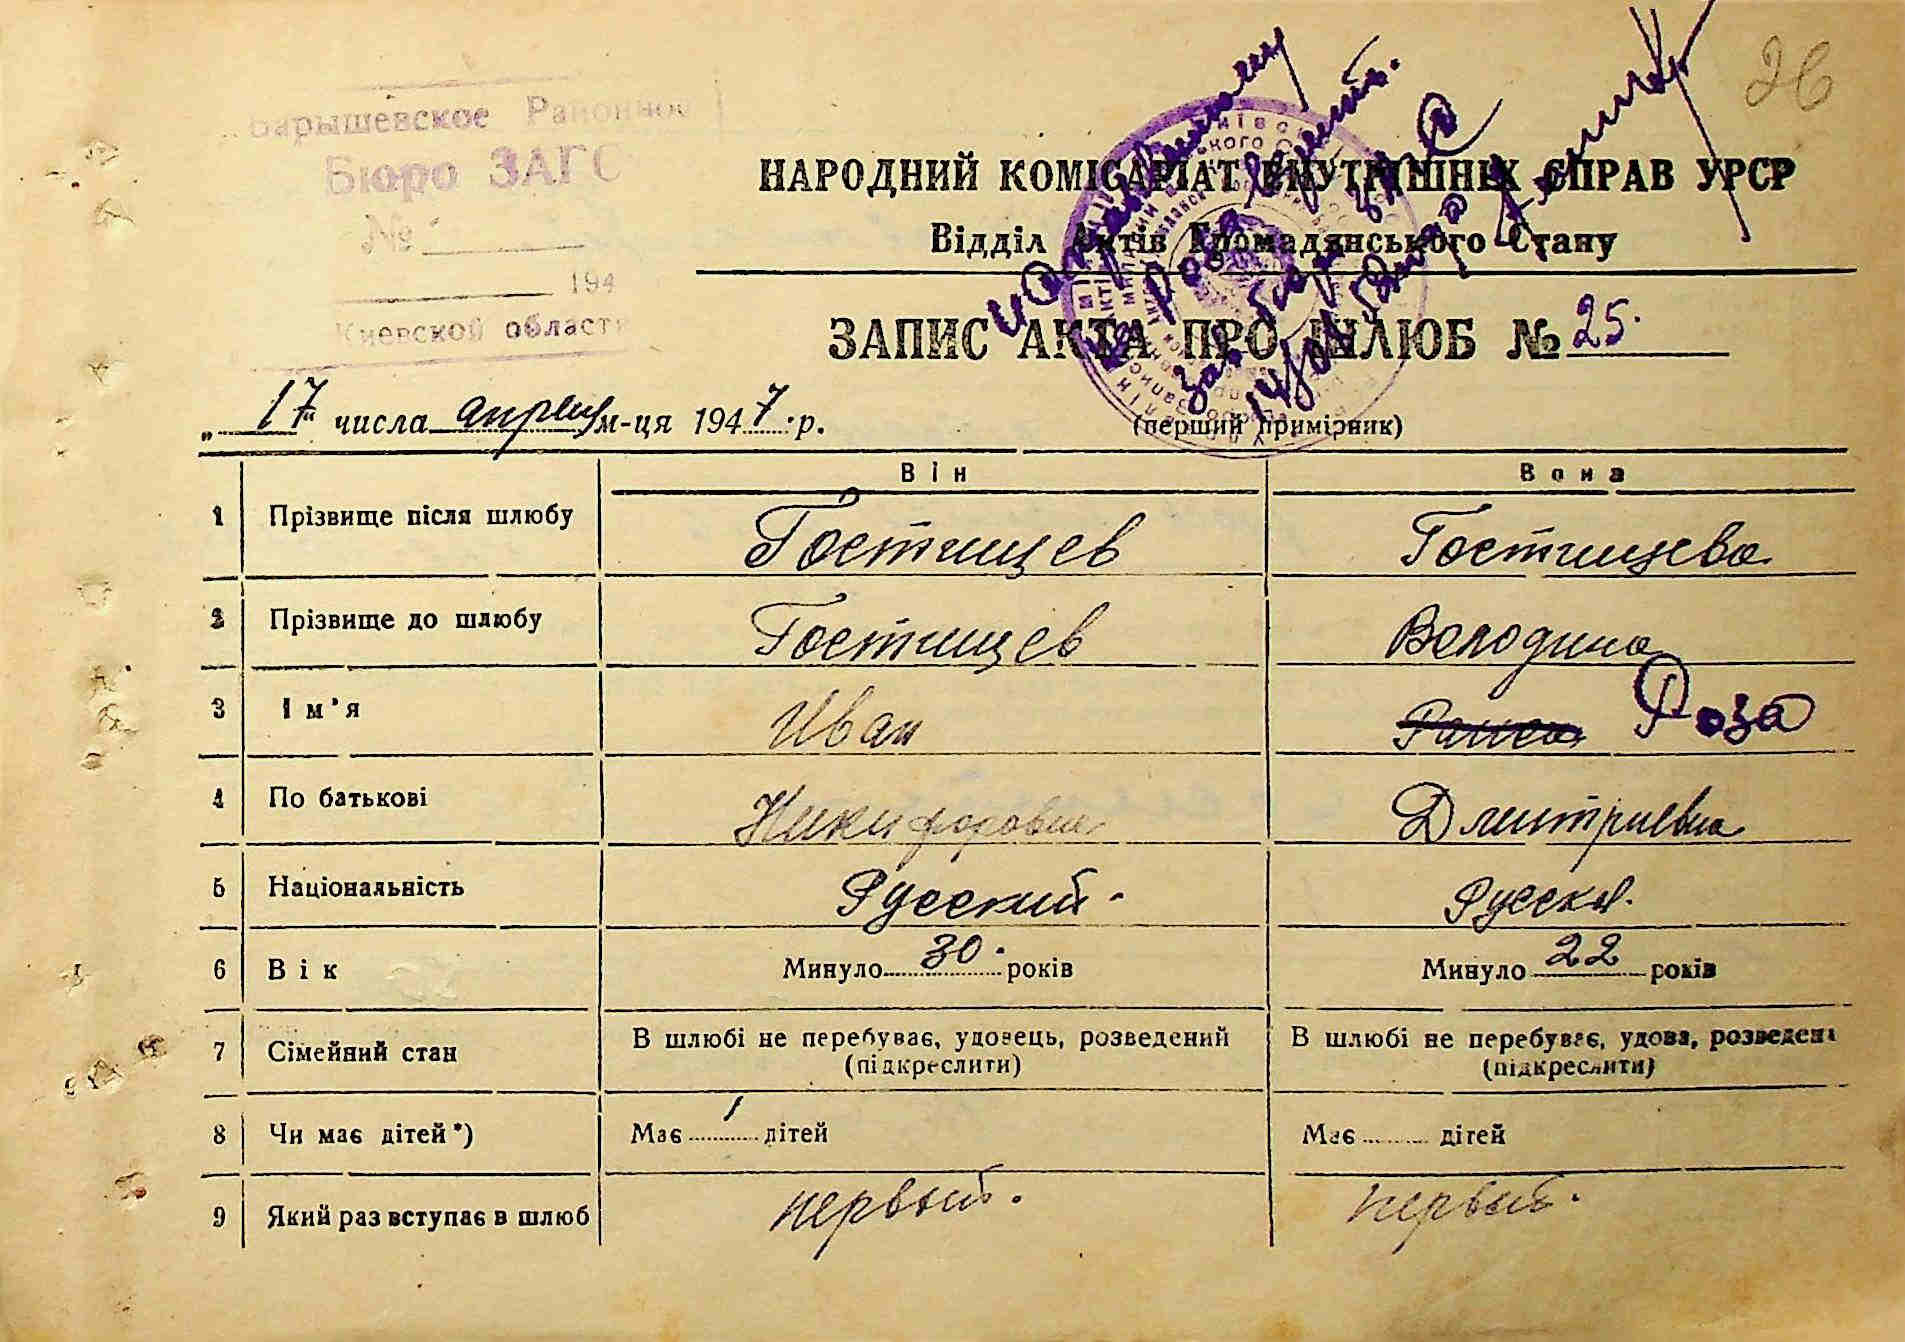 26
Барышевское Районное
Бюро ЗАГС
№
194
Киевской области
НАРОДНИЙ КОМІСАРІАТ ВНУТРІШНІХ СПРАВ УРСР
Відділ Актів Громадянського Стану
ЗАПИС АКТА ПРО ШЛЮБ № 25.
"17" числа апреля м-ця 1947 р.
(перший примірник)
Він Вона
1 Прізвище після шлюбу Гостищев Гостищева
2 Прізвище до шлюбу Гостищев Володина
3 Ім'я Иван Роза
4 По батькові Никифорович Дмитриевна
5 Національність Русский. Русская.
6 Вік Минуло 30. років Минуло 22 років
7 Сімейний стан В шлюбі не перебуває, удовець, розведений В шлюбі не перебуває, удова, розведена
(підкреслити) (підкреслити)
8 Чи має дітей*) Має 1 дітей Має дітей
9 Який раз вступає в шлюб первый. первый.